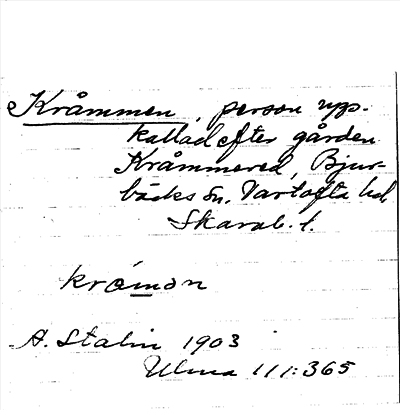 Kråmmen, person upp-
kallad efter gården
Kråmmered, Bjur-
bäcks sn, Vartofta hd,
Skarab. l.
krámən
A. Stalin 1903
Ulma 111:365